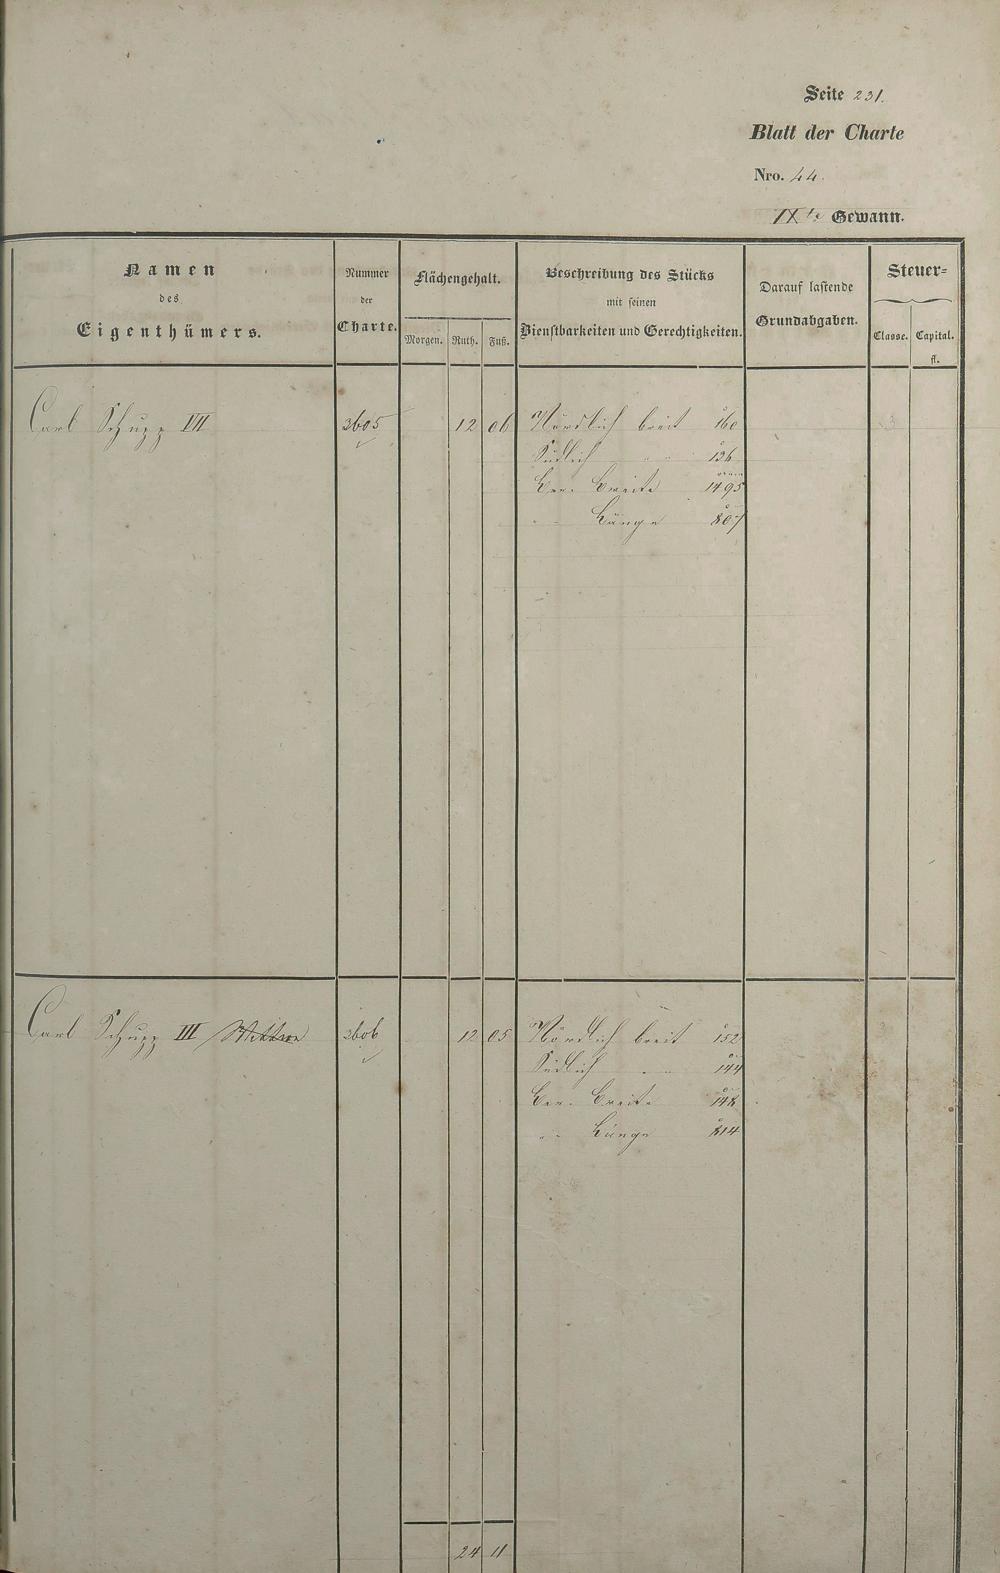 Seite 231.
Blatt der Charte
Nro. 44.
IXte Gewann.
Namen
des
Eigenthümers.
Nummer
der
Charte.
Flächengehalt.
Morgen. Ruth. Fuß.
Beschreibung des Stücks
mit seinen
Dienstbarkeiten und Gerechtigkeiten.
Darauf lastende
Grundabgaben.
Steuer=
Classe. Capital.
fl.
Carl Schupp VII 3605 12 06 Nördlich breit 160
Südlich " " 136
Ber. Breite 1495
" " Länge 807
Carl Schupp III Wittwe 3606 12 05 Nördlich breit 152
Südlich " " 144
Ber. Breite 148
" " Länge 814
24 11